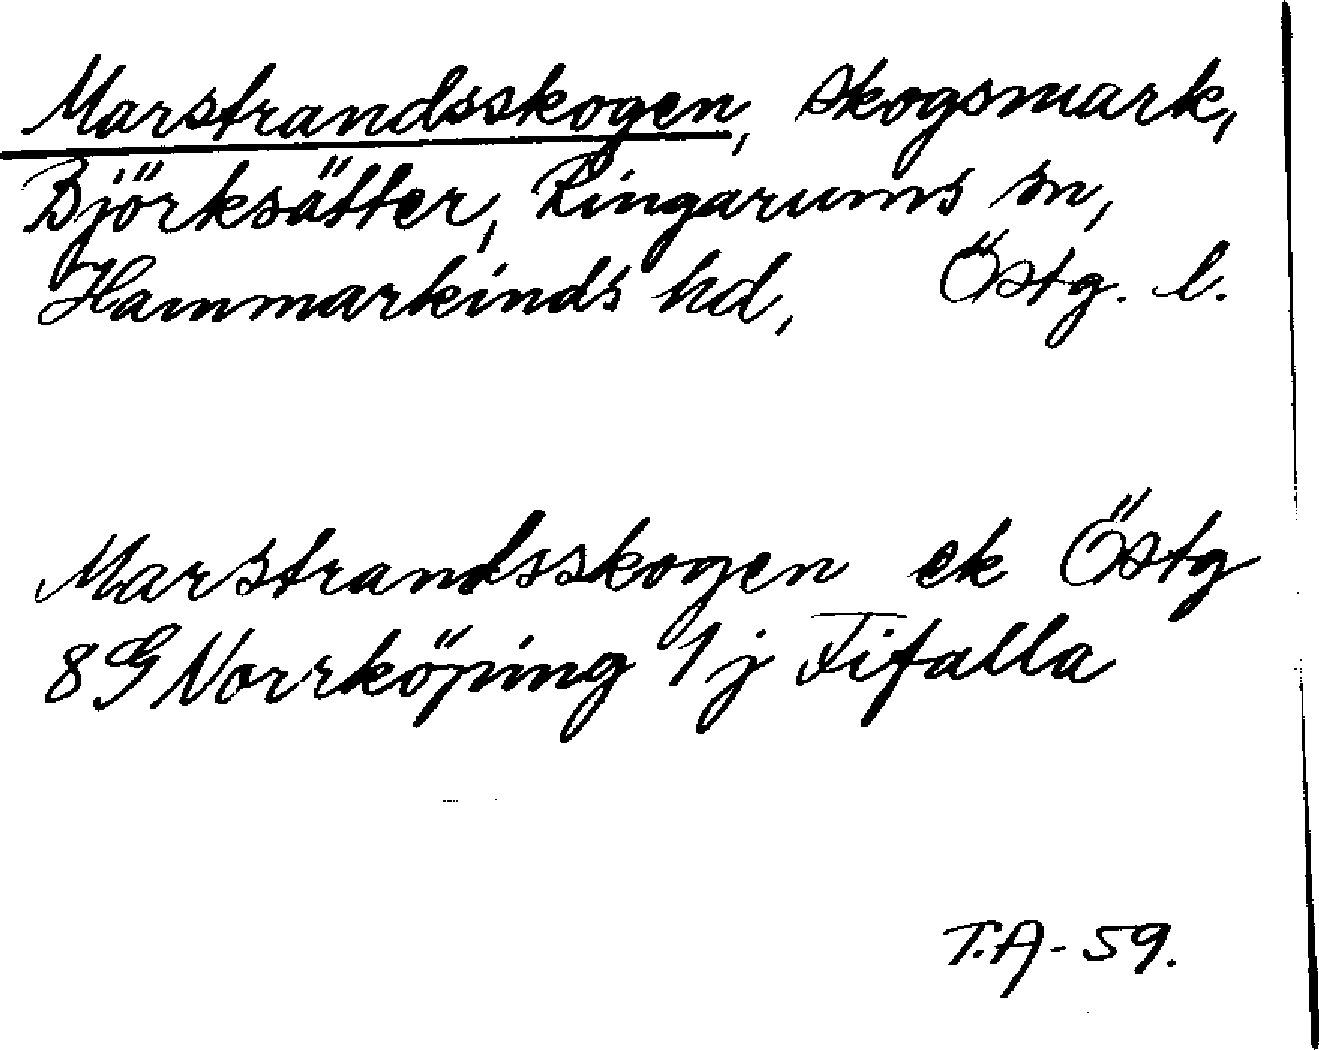 Marstrandsskogen, skogsmark,
Björksätter, Ringarums sn,
Hammarkinds hd, Östg. l.
Marstrandsskogen ek Östg
8G Norrköping 1j Fifalla
T.A-59.